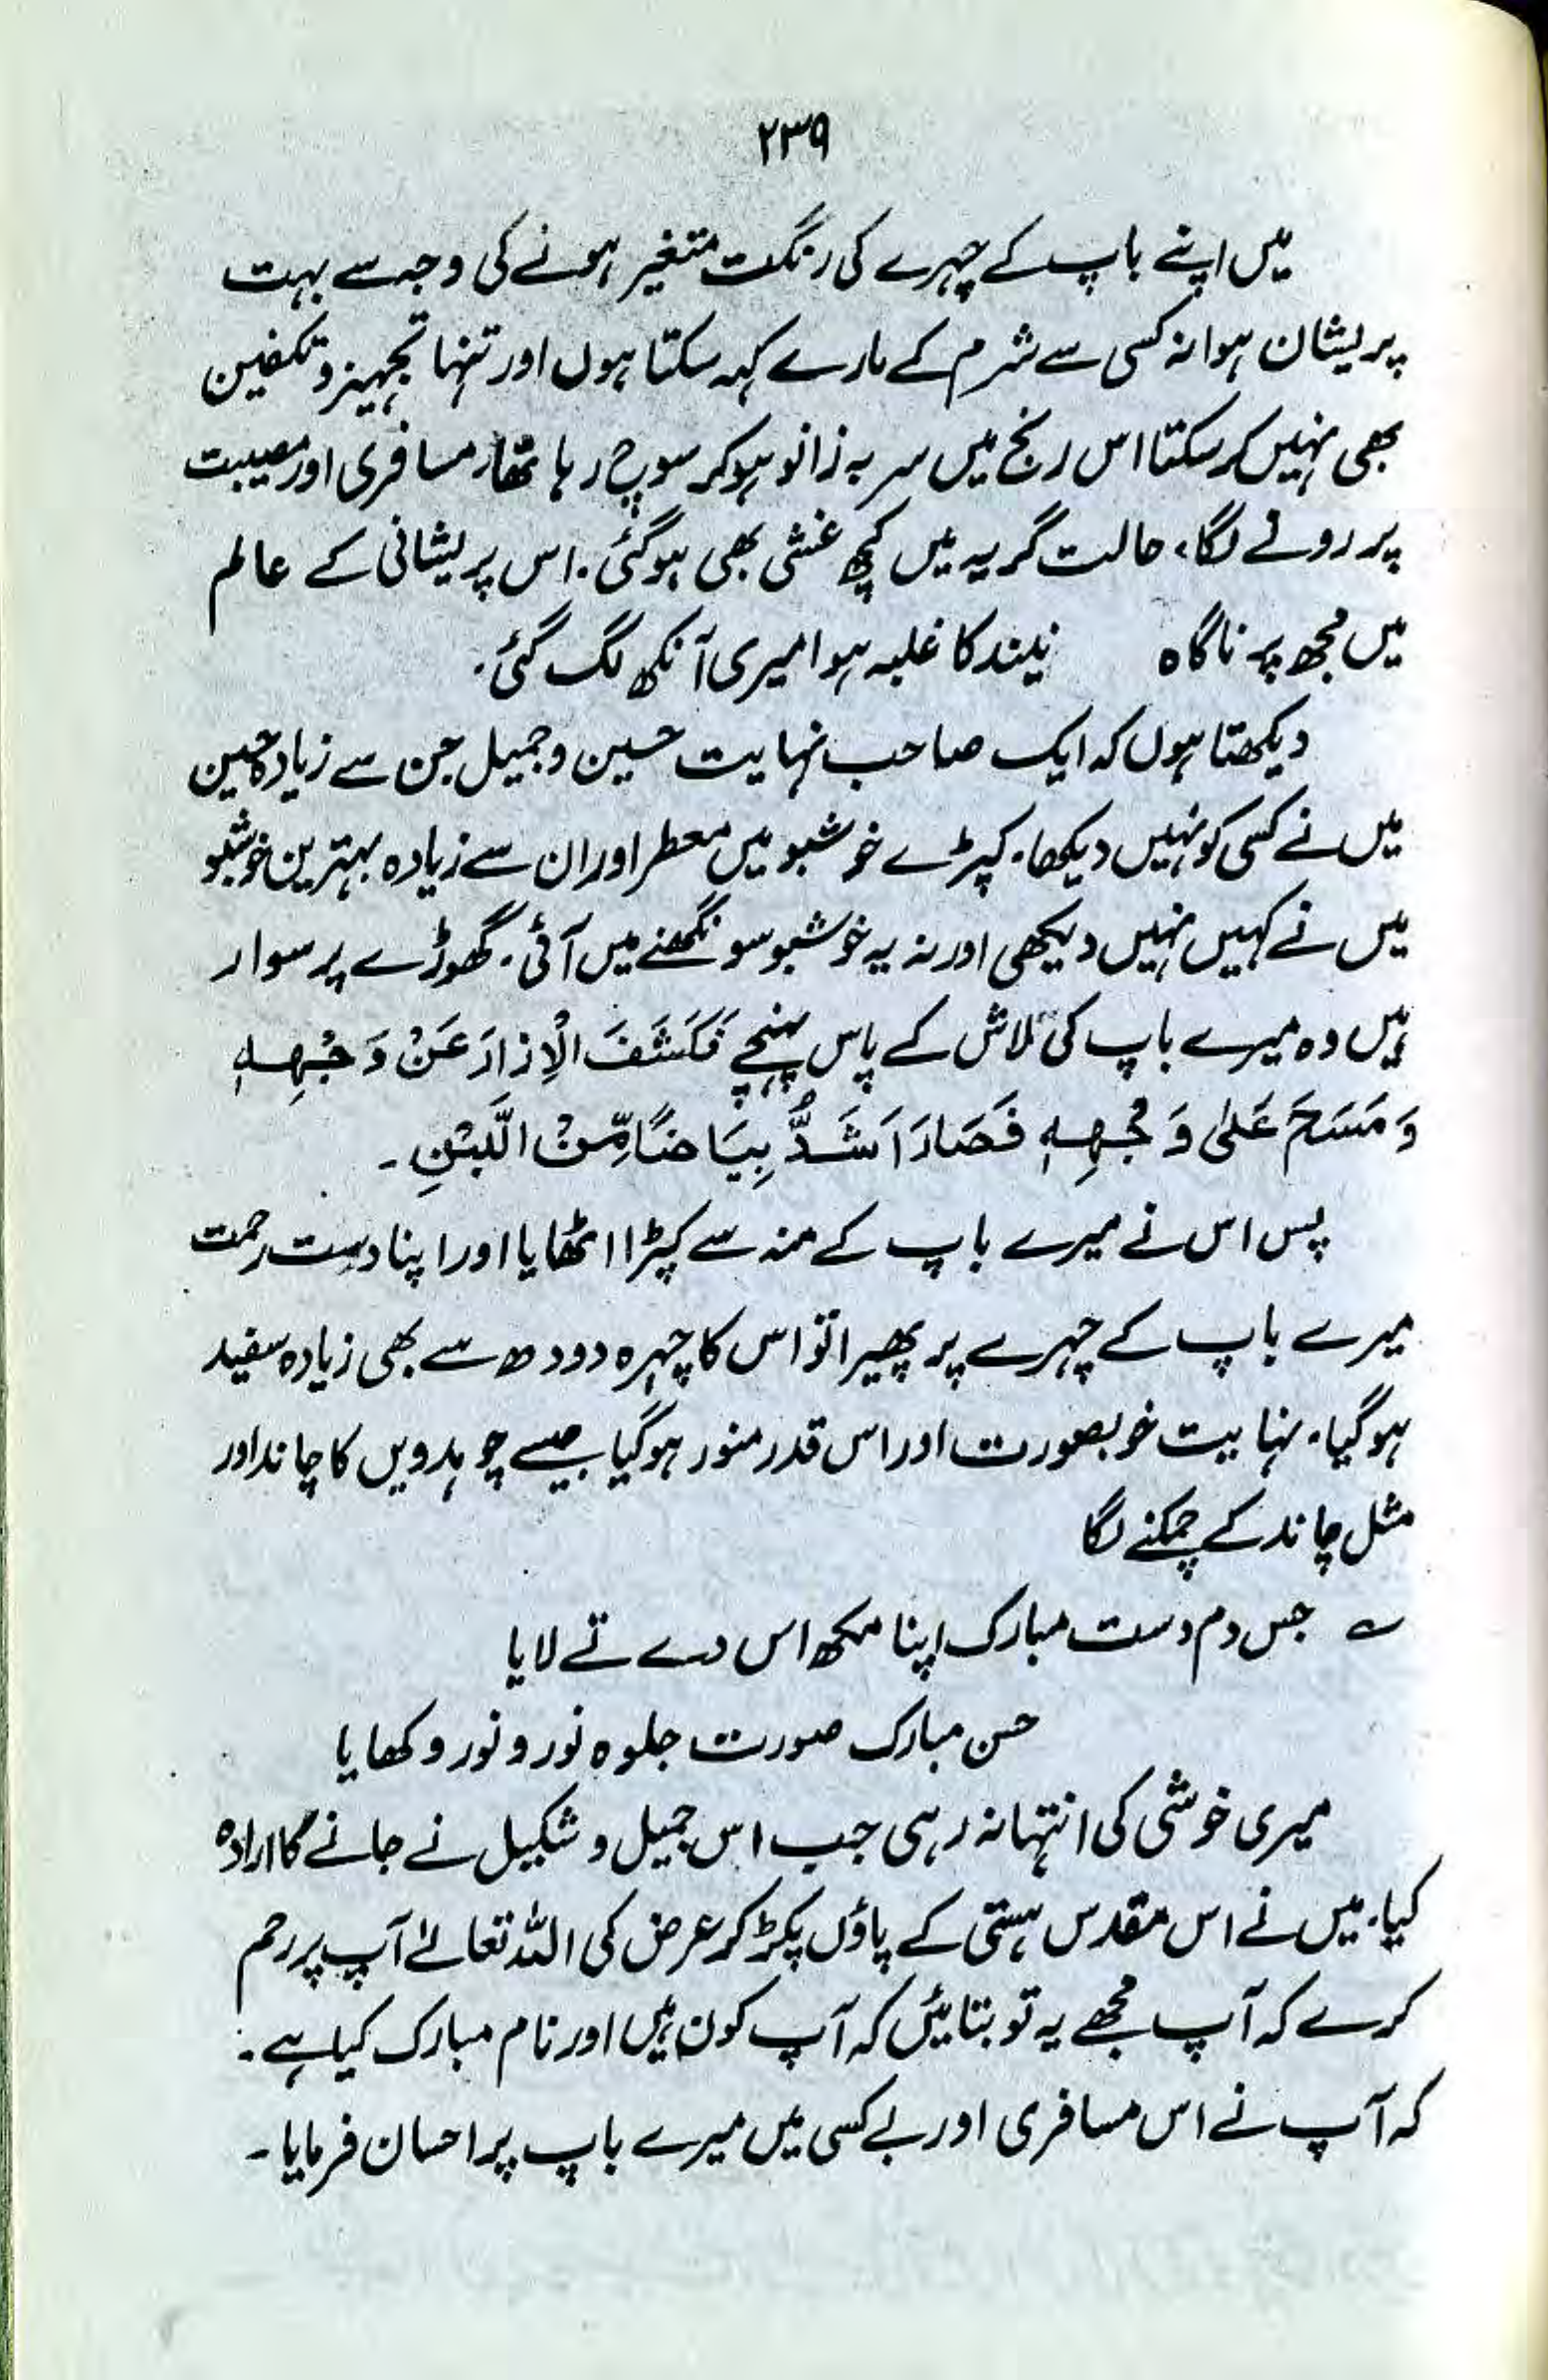 ۲۳۹
میں اپنے باپ کے چہرے کی رنگت متغیر ہونے کی وجہ سے بہت
پریشان ہوا نہ کسی سے شرم کے مارے کہہ سکتا ہوں اور تنہا تجہیز و تکفین
بھی نہیں کر سکتا اس رنج میں سر بہ زانو ہو کر سوچ رہا تھا، مسافری اور مصیبت
پر رونے لگا، حالت گریہ میں کچھ غشی بھی ہو گئی۔ اس پریشانی کے عالم
میں مجھ پر ناگاہ نیند کا غلبہ ہوا میری آنکھ لگ گئی۔
دیکھتا ہوں کہ ایک صاحب نہایت حسین و جمیل جن سے زیادہ حسین
میں نے کسی کو نہیں دیکھا۔ کپڑے خوشبو میں معطر اور ان سے زیادہ بہترین خوشبو
میں نے کہیں نہیں دیکھی اور نہ یہ خوشبو سونگھنے میں آئی۔ گھوڑے پر سوار
ہیں وہ میرے باپ کی لاش کے پاس پہنچے فَکَشَفَ الْاِزَارَ عَنْ وَجْہِہٖ
وَمَسَحَ عَلٰی وَجْہِہٖ فَصَارَ اَشَدُّ بِیَاضًا مِّنْ الَّبَنِ ۔
پس اس نے میرے باپ کے منہ سے کپڑا اٹھایا اور اپنا دستِ رحمت
میرے باپ کے چہرے پر پھیرا تو اس کا چہرہ دودھ سے بھی زیادہ سفید
ہو گیا۔ نہایت خوبصورت اور اس قدر منور ہو گیا جیسے چوہدویں کا چاند اور
مثل چاند کے چمکنے لگا
؎ جس دم دست مبارک اپنا مکھ اس دے تے لایا
حسن مبارک صورت جلوہ نور و نور وکھایا
میری خوشی کی انتہا نہ رہی جب اس جمیل و شکیل نے جانے کا ارادہ
کیا۔ میں نے اس مقدس ہستی کے پاؤں پکڑ کر عرض کی اللہ تعالےٰ آپ پر رحم
کرے کہ آپ مجھے یہ تو بتائیں کہ آپ کون ہیں اور نام مبارک کیا ہے۔
کہ آپ نے اس مسافری اور بے کسی میں میرے باپ پر احسان فرمایا۔